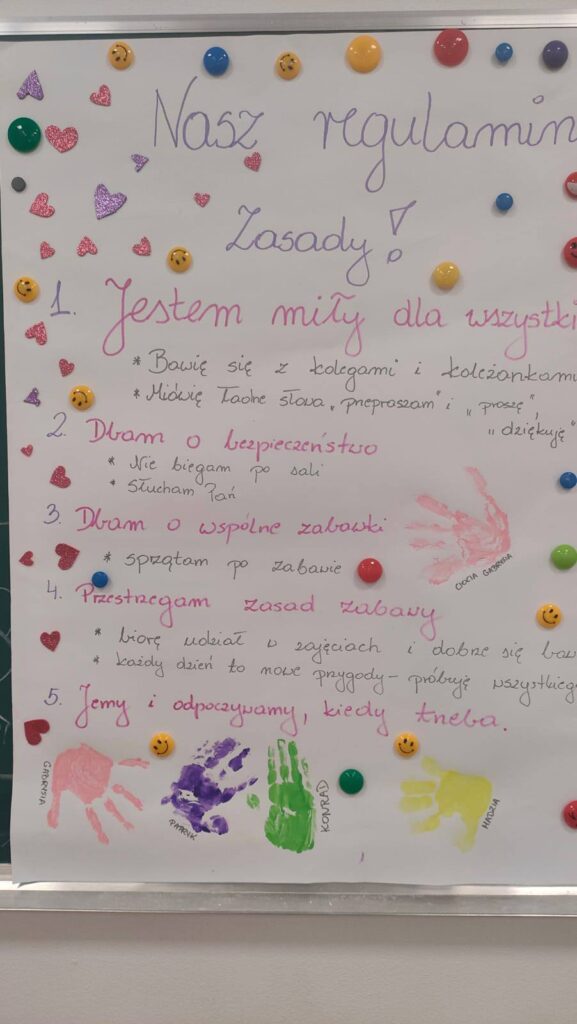 Nasz regulamin
Zasady!
1. Jestem miły dla wszystki
* Bawię się z kolegami i koleżankami
* Mówię ładne słowa „przepraszam" i „proszę",
„dziękuję"
2. Dbam o bezpieczeństwo
* Nie biegam po sali
* Słucham Pań
3. Dbam o wspólne zabawki
* sprzątam po zabawie
CIOCIA GABRYSIA
4. Przestrzegam zasad zabawy
* biorę udział w zajęciach i dobrze się baw
* każdy dzień to nowe przygody – próbuję wszystkieg
5. Jemy i odpoczywamy, kiedy trzeba.
GABRYSIA
PATRYK
KONRAD
NADZIA